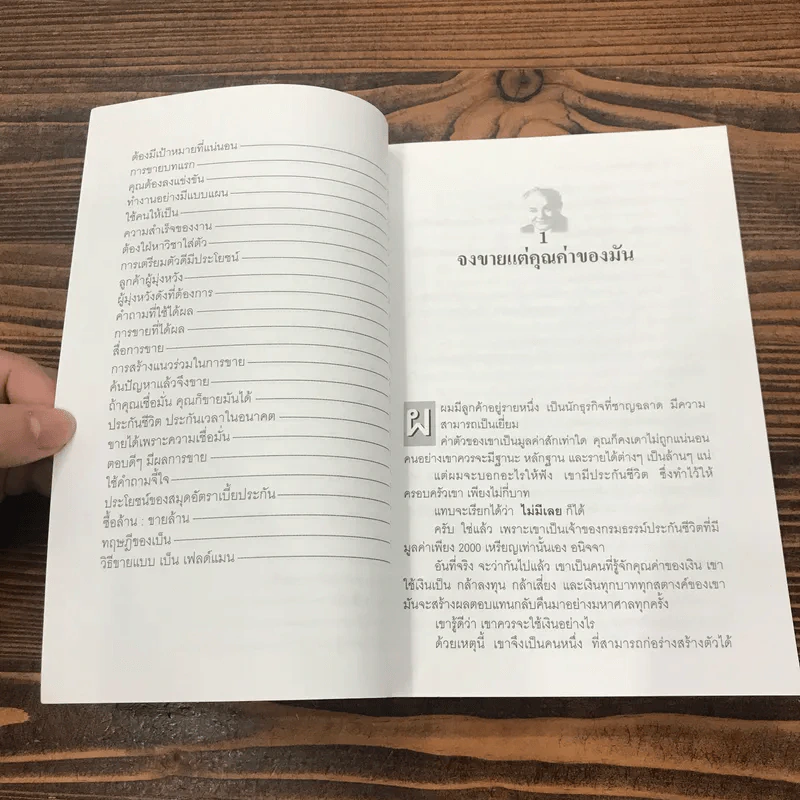 ต้องมีเป้าหมายที่แน่นอน
การขายบทแรก
คุณต้องลงแข่งขัน
ทำงานอย่างมีแบบแผน
ใช้คนให้เป็น
ความสำเร็จของงาน
ต้องใฝ่หาวิชาใส่ตัว
การเตรียมตัวดีมีประโยชน์
ลูกค้าผู้มุ่งหวัง
ผู้มุ่งหวังดังที่ต้องการ
คำถามที่ใช้ได้ผล
การขายที่ได้ผล
สื่อการขาย
การสร้างแนวร่วมในการขาย
ค้นปัญหาแล้วจึงขาย
ถ้าคุณเชื่อมั่น คุณก็ขายมันได้
ประกันชีวิต ประกันเวลาในอนาคต
ขายได้เพราะความเชื่อมั่น
ตอบดีๆ มีผลการขาย
ใช้คำถามจี้ใจ
ประโยชน์ของสมุดอัตราเบี้ยประกัน
ซื้อล้าน : ขายล้าน
ทฤษฎีของเบ็น
วิธีขายแบบ เบ็น เฟลด์แมน
1
จงขายแต่คุณค่าของมัน
ผ
ผมมีลูกค้าอยู่รายหนึ่ง เป็นนักธุรกิจที่ชาญฉลาด มีความ
สามารถเป็นเยี่ยม
ค่าตัวของเขาเป็นมูลค่าสักเท่าใด คุณก็คงเดาไม่ถูกแน่นอน
คนอย่างเขาควรจะมีฐานะ หลักฐาน และรายได้ต่างๆ เป็นล้านๆ แน่
แต่ผมจะบอกอะไรให้ฟัง เขามีประกันชีวิต ซึ่งทำไว้ให้
ครอบครัวเขา เพียงไม่กี่บาท
แทบจะเรียกได้ว่า ไม่มีเลย ก็ได้
ครับ ใช่แล้ว เพราะเขาเป็นเจ้าของกรมธรรม์ประกันชีวิตที่มี
มูลค่าเพียง 2000 เหรียญเท่านั้นเอง อนิจจา
อันที่จริง จะว่ากันไปแล้ว เขาเป็นคนที่รู้จักคุณค่าของเงิน เขา
ใช้เงินเป็น กล้าลงทุน กล้าเสี่ยง และเงินทุกบาททุกสตางค์ของเขา
มันจะสร้างผลตอบแทนกลับคืนมาอย่างมหาศาลทุกครั้ง
เขารู้ดีว่า เขาควรจะใช้เงินอย่างไร
ด้วยเหตุนี้ เขาจึงเป็นคนหนึ่ง ที่สามารถก่อร่างสร้างตัวได้